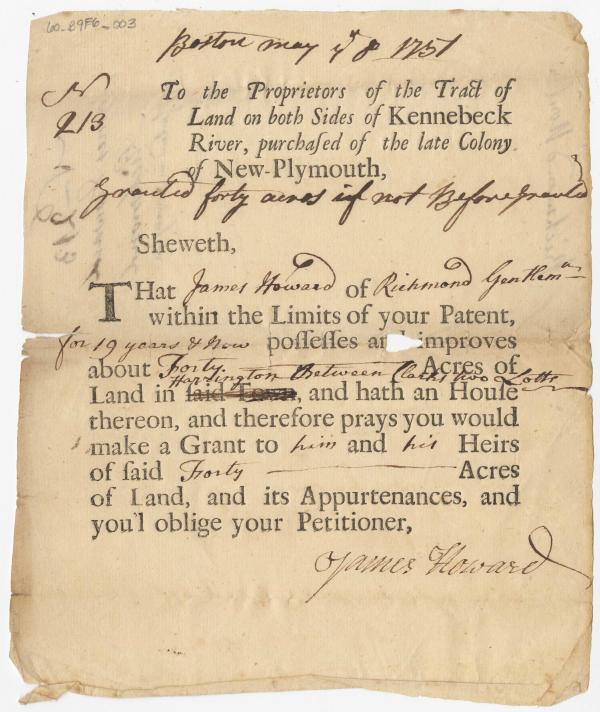 60-29F6-003
Boston may ye 8 1751
No
213
To the Proprietors of the Tract of
Land on both Sides of Kennebeck
River, purchaſed of the late Colony
of New-Plymouth,
Granted forty acres if not Before Granted
Sheweth,
THat James Howard of Richmond Gentlemn
within the Limits of your Patent,
for 19 years & Now poſſeſſes and improves
about Forty Acres of
Harrington Between Clarks two Lotts
Land in ſaid Town, and hath an Houſe
thereon, and therefore prays you would
make a Grant to him and his Heirs
of ſaid Forty Acres
of Land, and its Appurtenances, and
you'l oblige your Petitioner,
James Howard